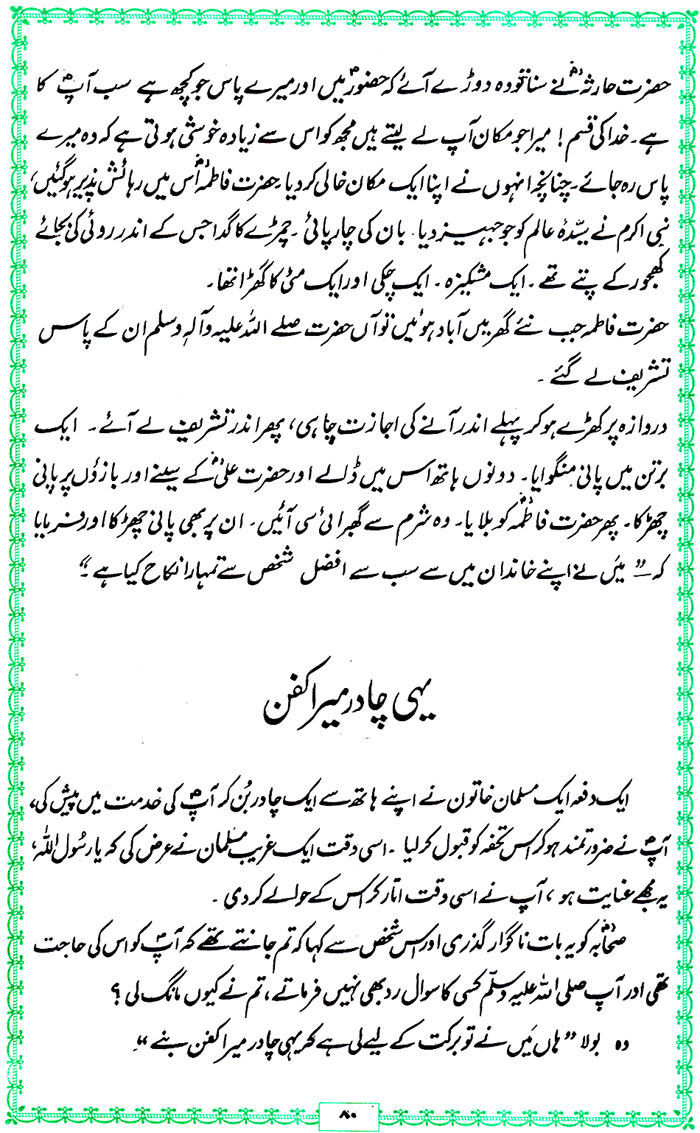 حضرت حارثہؓ نے سنا تو وہ دوڑے آئے کہ حضورؐ میں اور میرے پاس جو کچھ ہے سب آپؐ کا
ہے۔ خدا کی قسم! میرا جو مکان آپ لے لیتے ہیں مجھ کو اس سے زیادہ خوشی ہوتی ہے کہ وہ میرے
پاس رہ جائے۔ چنانچہ انہوں نے اپنا ایک مکان خالی کر دیا۔ حضرت فاطمہؓ اُس میں رہائش پذیر ہو گئیں،
نبی اکرم نے سیّدہٗ عالم کو جو جہیز دیا۔ بان کی چارپائی۔ چمڑے کا گدا جس کے اندر روئی کی بجائے
کھجور کے پتے تھے۔ ایک مشکیزہ۔ ایک چکی اور ایک مٹی کا گھڑا تھا۔
حضرت فاطمہ جب نئے گھر میں آباد ہوئیں تو آں حضرت صلے اللہ علیہ وآلہٖ وسلم ان کے پاس
تشریف لے گئے۔
دروازہ پر کھڑے ہو کر پہلے اندر آنے کی اجازت چاہی، پھر اندر تشریف لے آئے۔ ایک
برتن میں پانی منگوایا۔ دونوں ہاتھ اس میں ڈالے اور حضرت علیؓ کے سینے اور بازوؤں پر پانی
چھڑکا۔ پھر حضرت فاطمہؓ کو بلایا۔ وہ شرم سے گھبرائی سی آئیں۔ ان پر بھی پانی چھڑکا اور فرمایا
کہ ”میں نے اپنے خاندان میں سے سب سے افضل شخص سے تمہارا نکاح کیا ہے“
یہی چادر میرا کفن
ایک دفعہ ایک مسلمان خاتون نے اپنے ہاتھ سے ایک چادر بُن کر آپؐ کی خدمت میں پیش کی،
آپؐ نے ضرورتمند ہو کر اس تحفہ کو قبول کر لیا۔ اسی وقت ایک غریب مسلمان نے عرض کی کہ یا رسُول اللہؐ،
یہ مجھے عنایت ہو، آپ نے اسی وقت اتار کر اس کے حوالے کر دی۔
صحابہؓ کو یہ بات ناگوار گذری اور اس شخص سے کہا کہ تم جانتے تھے کہ آپؐ کو اس کی حاجت
تھی اور آپ صلی اللہ علیہ وسلّم کسی کا سوال رد بھی نہیں فرماتے، تم نے کیوں مانگ لی؟
وہ بولا ”ہاں مَیں نے تو برکت کے لیے لی ہے کہ یہی چادر میرا کفن بنے“۔
۸۰